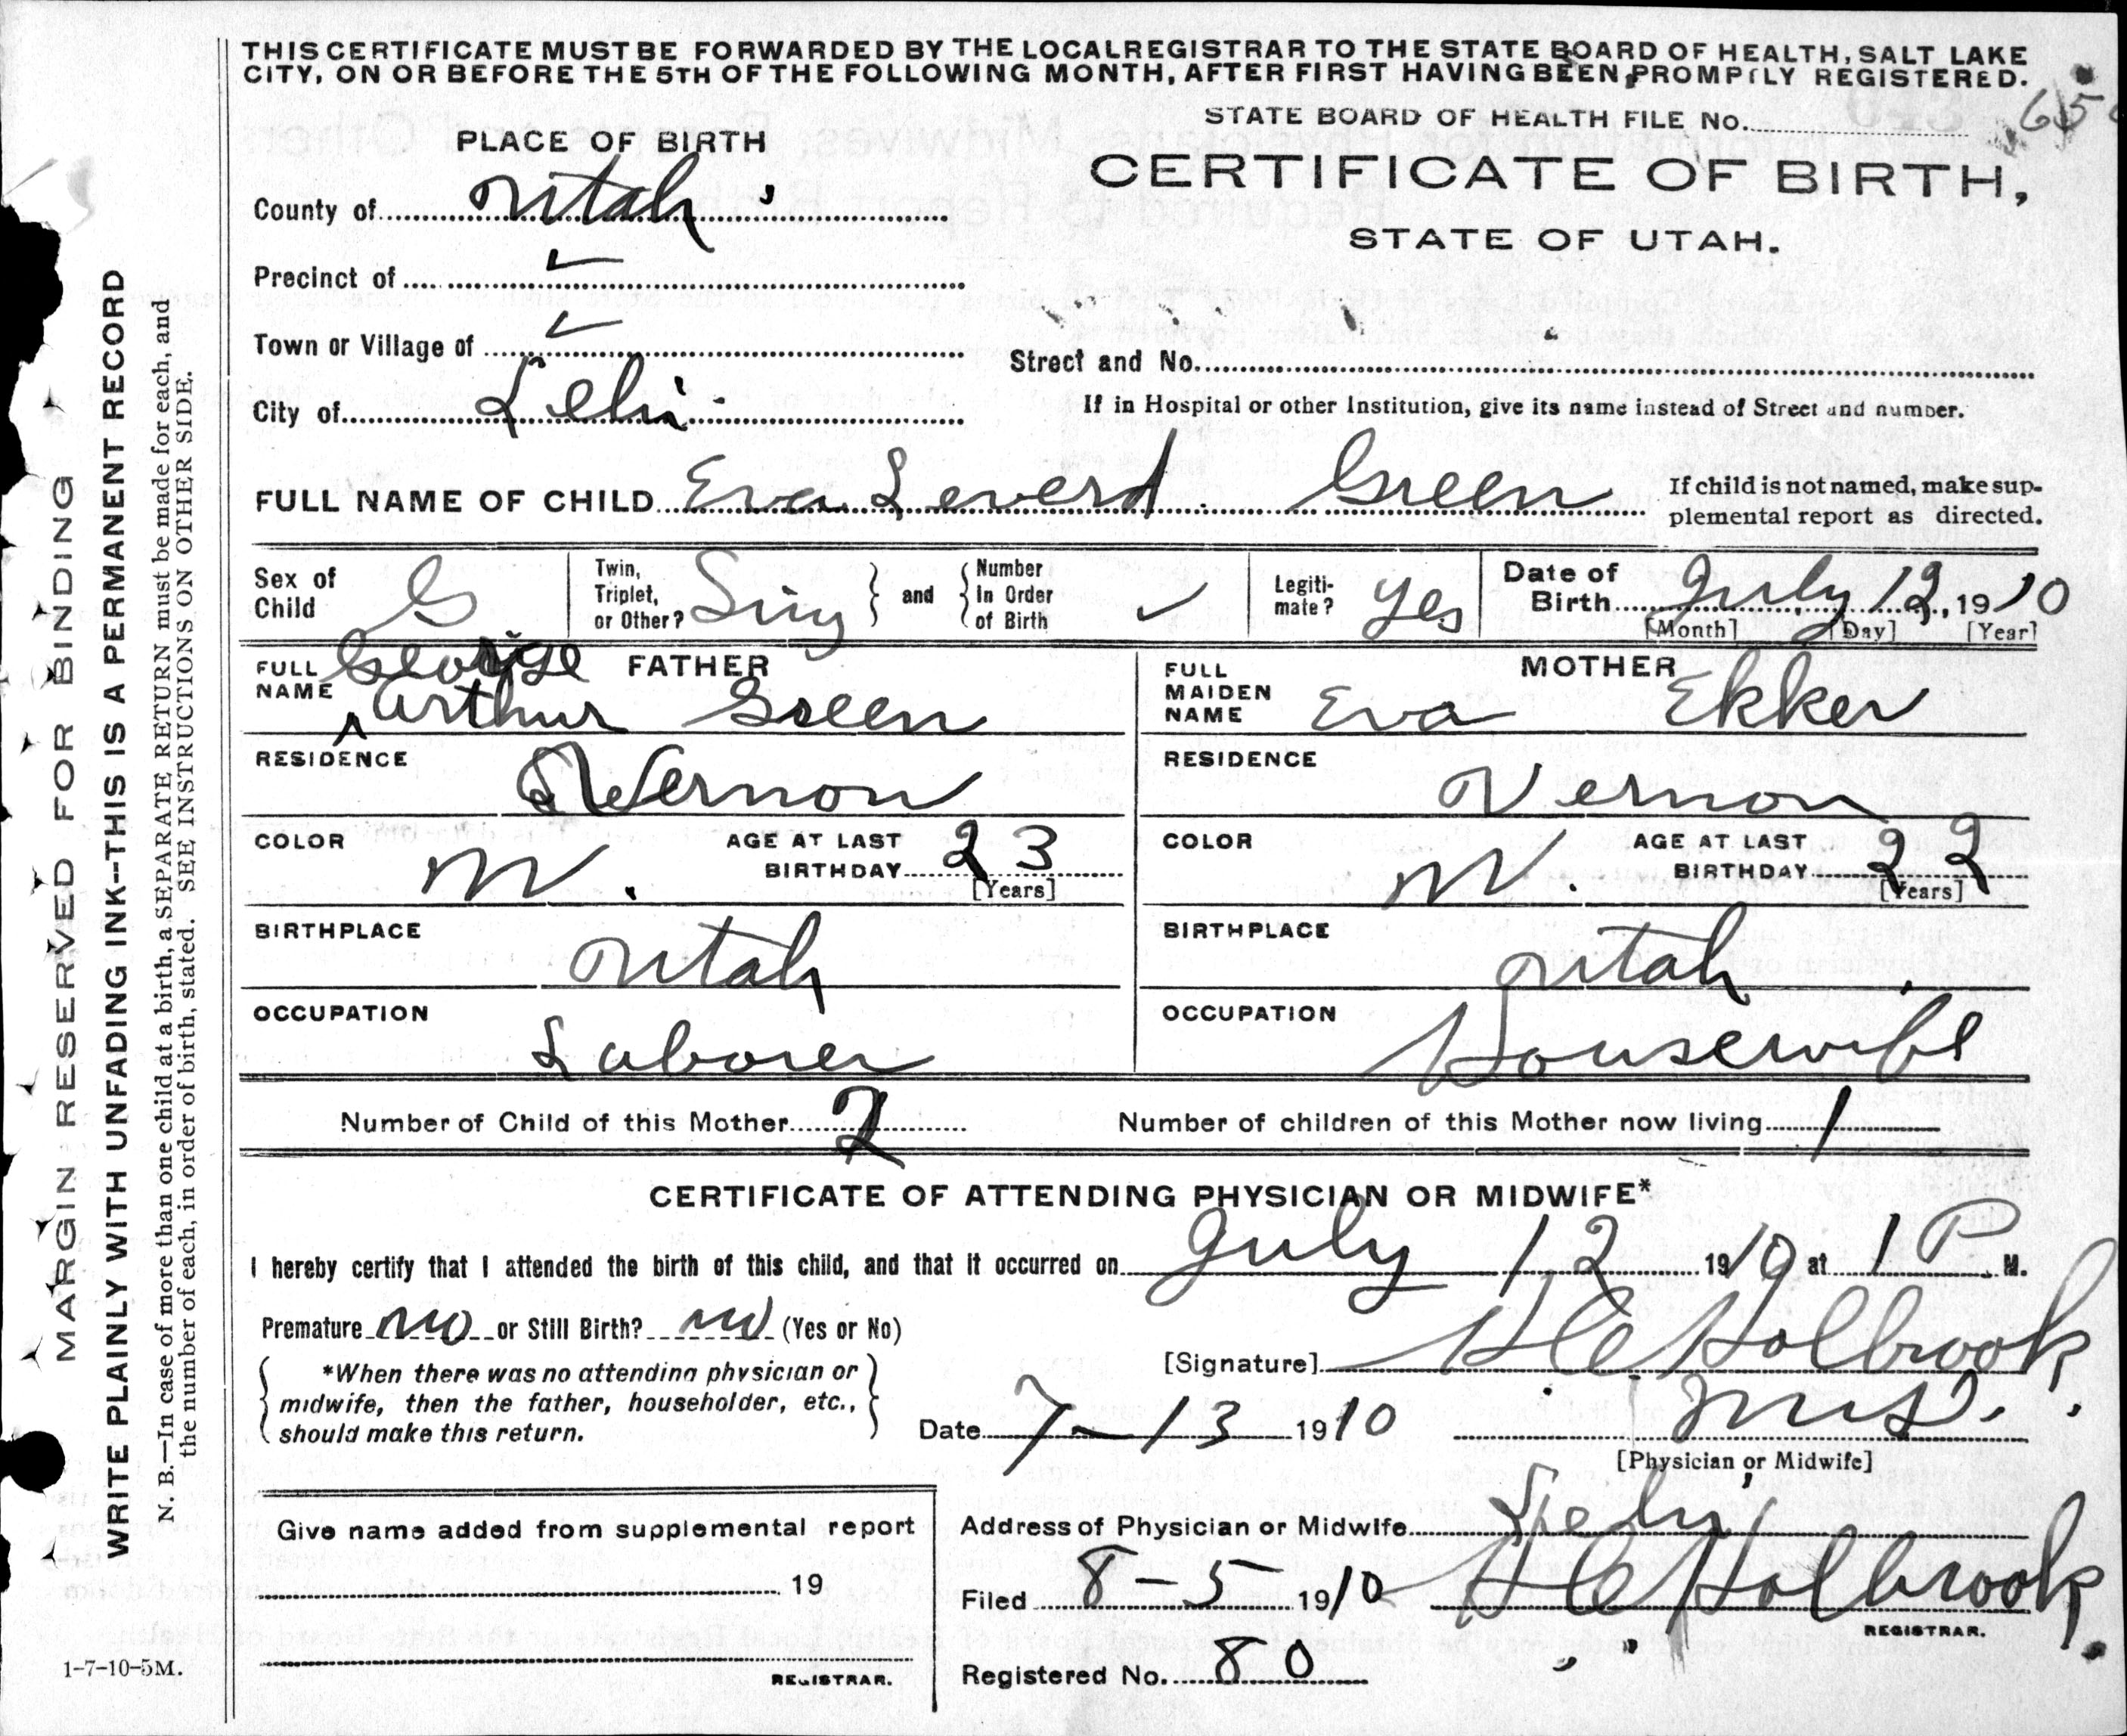 THIS CERTIFICATE MUST BE FORWARDED BY THE LOCAL REGISTRAR TO THE STATE BOARD OF HEALTH, SALT LAKE
CITY, ON OR BEFORE THE 5TH OF THE FOLLOWING MONTH, AFTER FIRST HAVING BEEN PROMPTLY REGISTERED.
STATE BOARD OF HEALTH FILE No.
PLACE OF BIRTH
CERTIFICATE OF BIRTH,
STATE OF UTAH.
County of Utah
Precinct of ✓
Town or Village of ✓
Street and No.
City of Lehi
If in Hospital or other Institution, give its name instead of Street and number.
FULL NAME OF CHILD Eva Leverd Green
If child is not named, make sup-
plemental report as directed.
Sex of Child G
Twin, Triplet, or Other? Sing } and { Number In Order of Birth ✓
Legiti-mate? Yes
Date of Birth July 12, 1910
[Month] [Day] [Year]
FATHER
FULL NAME George Arthur Green
MOTHER
FULL MAIDEN NAME Eva Ekker
RESIDENCE Vernon
RESIDENCE Vernon
COLOR W. AGE AT LAST BIRTHDAY 23 [Years]
COLOR W. AGE AT LAST BIRTHDAY 22 [Years]
BIRTHPLACE Utah
BIRTHPLACE Utah
OCCUPATION Laborer
OCCUPATION Housewife
Number of Child of this Mother 2
Number of children of this Mother now living 1
CERTIFICATE OF ATTENDING PHYSICIAN OR MIDWIFE*
I hereby certify that I attended the birth of this child, and that it occurred on July 12 1910 at 1 P M.
Premature no or Still Birth? no (Yes or No)
*When there was no attending physician or
midwife, then the father, householder, etc.,
should make this return.
[Signature] H C Holbrook
Date 7-13 1910
M.D.
[Physician or Midwife]
Give name added from supplemental report
19
REGISTRAR.
Address of Physician or Midwife Lehi
Filed 8-5 1910 H C Holbrook
REGISTRAR.
Registered No. 80
1-7-10-5M.
MARGIN RESERVED FOR BINDING
WRITE PLAINLY WITH UNFADING INK--THIS IS A PERMANENT RECORD
N. B.—In case of more than one child at a birth, a SEPARATE RETURN must be made for each, and
the number of each, in order of birth, stated. SEE INSTRUCTIONS ON OTHER SIDE.